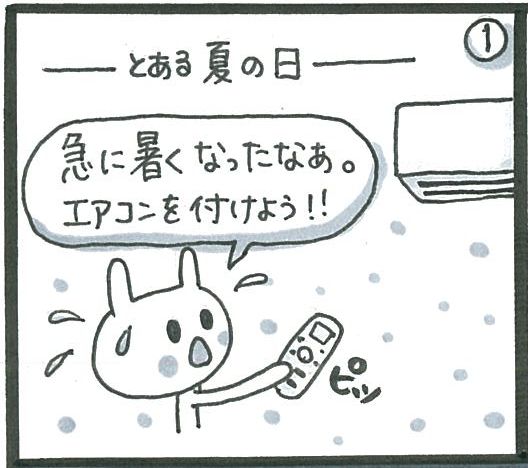 ①
とある夏の日
急に暑くなったなぁ。
エアコンを付けよう!!
ピッ